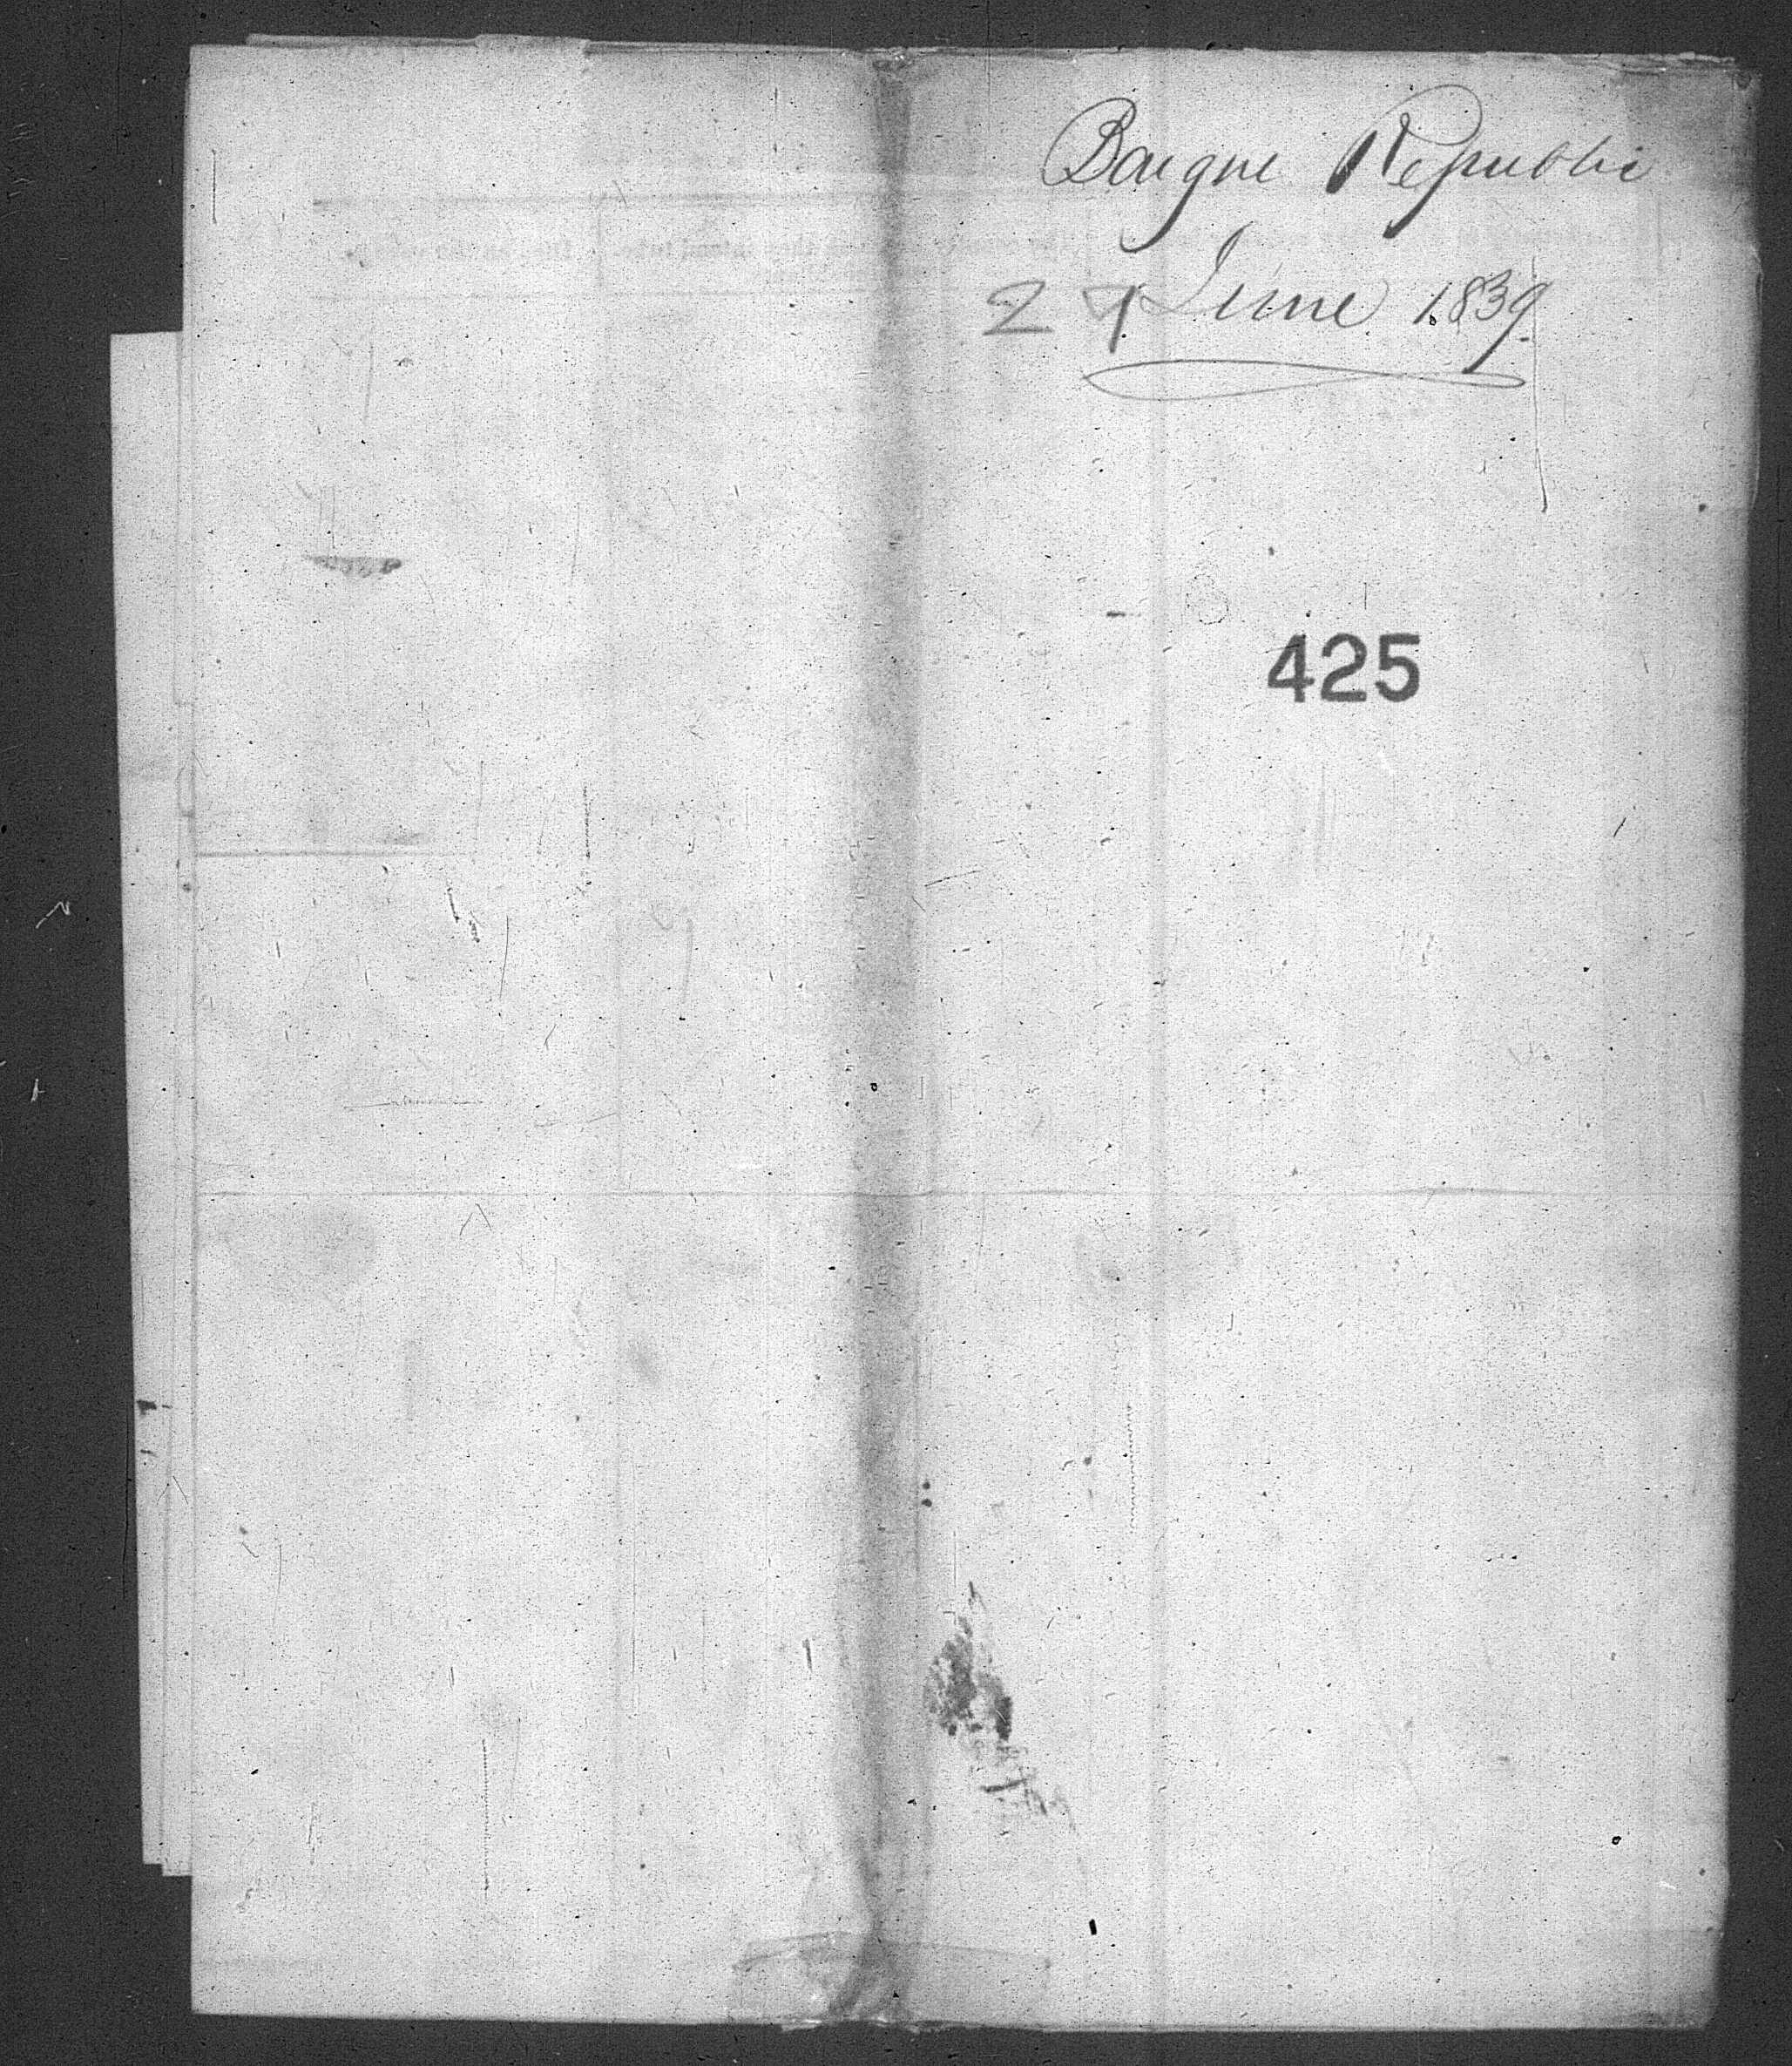 Barque Republic
27 June 1839.
425